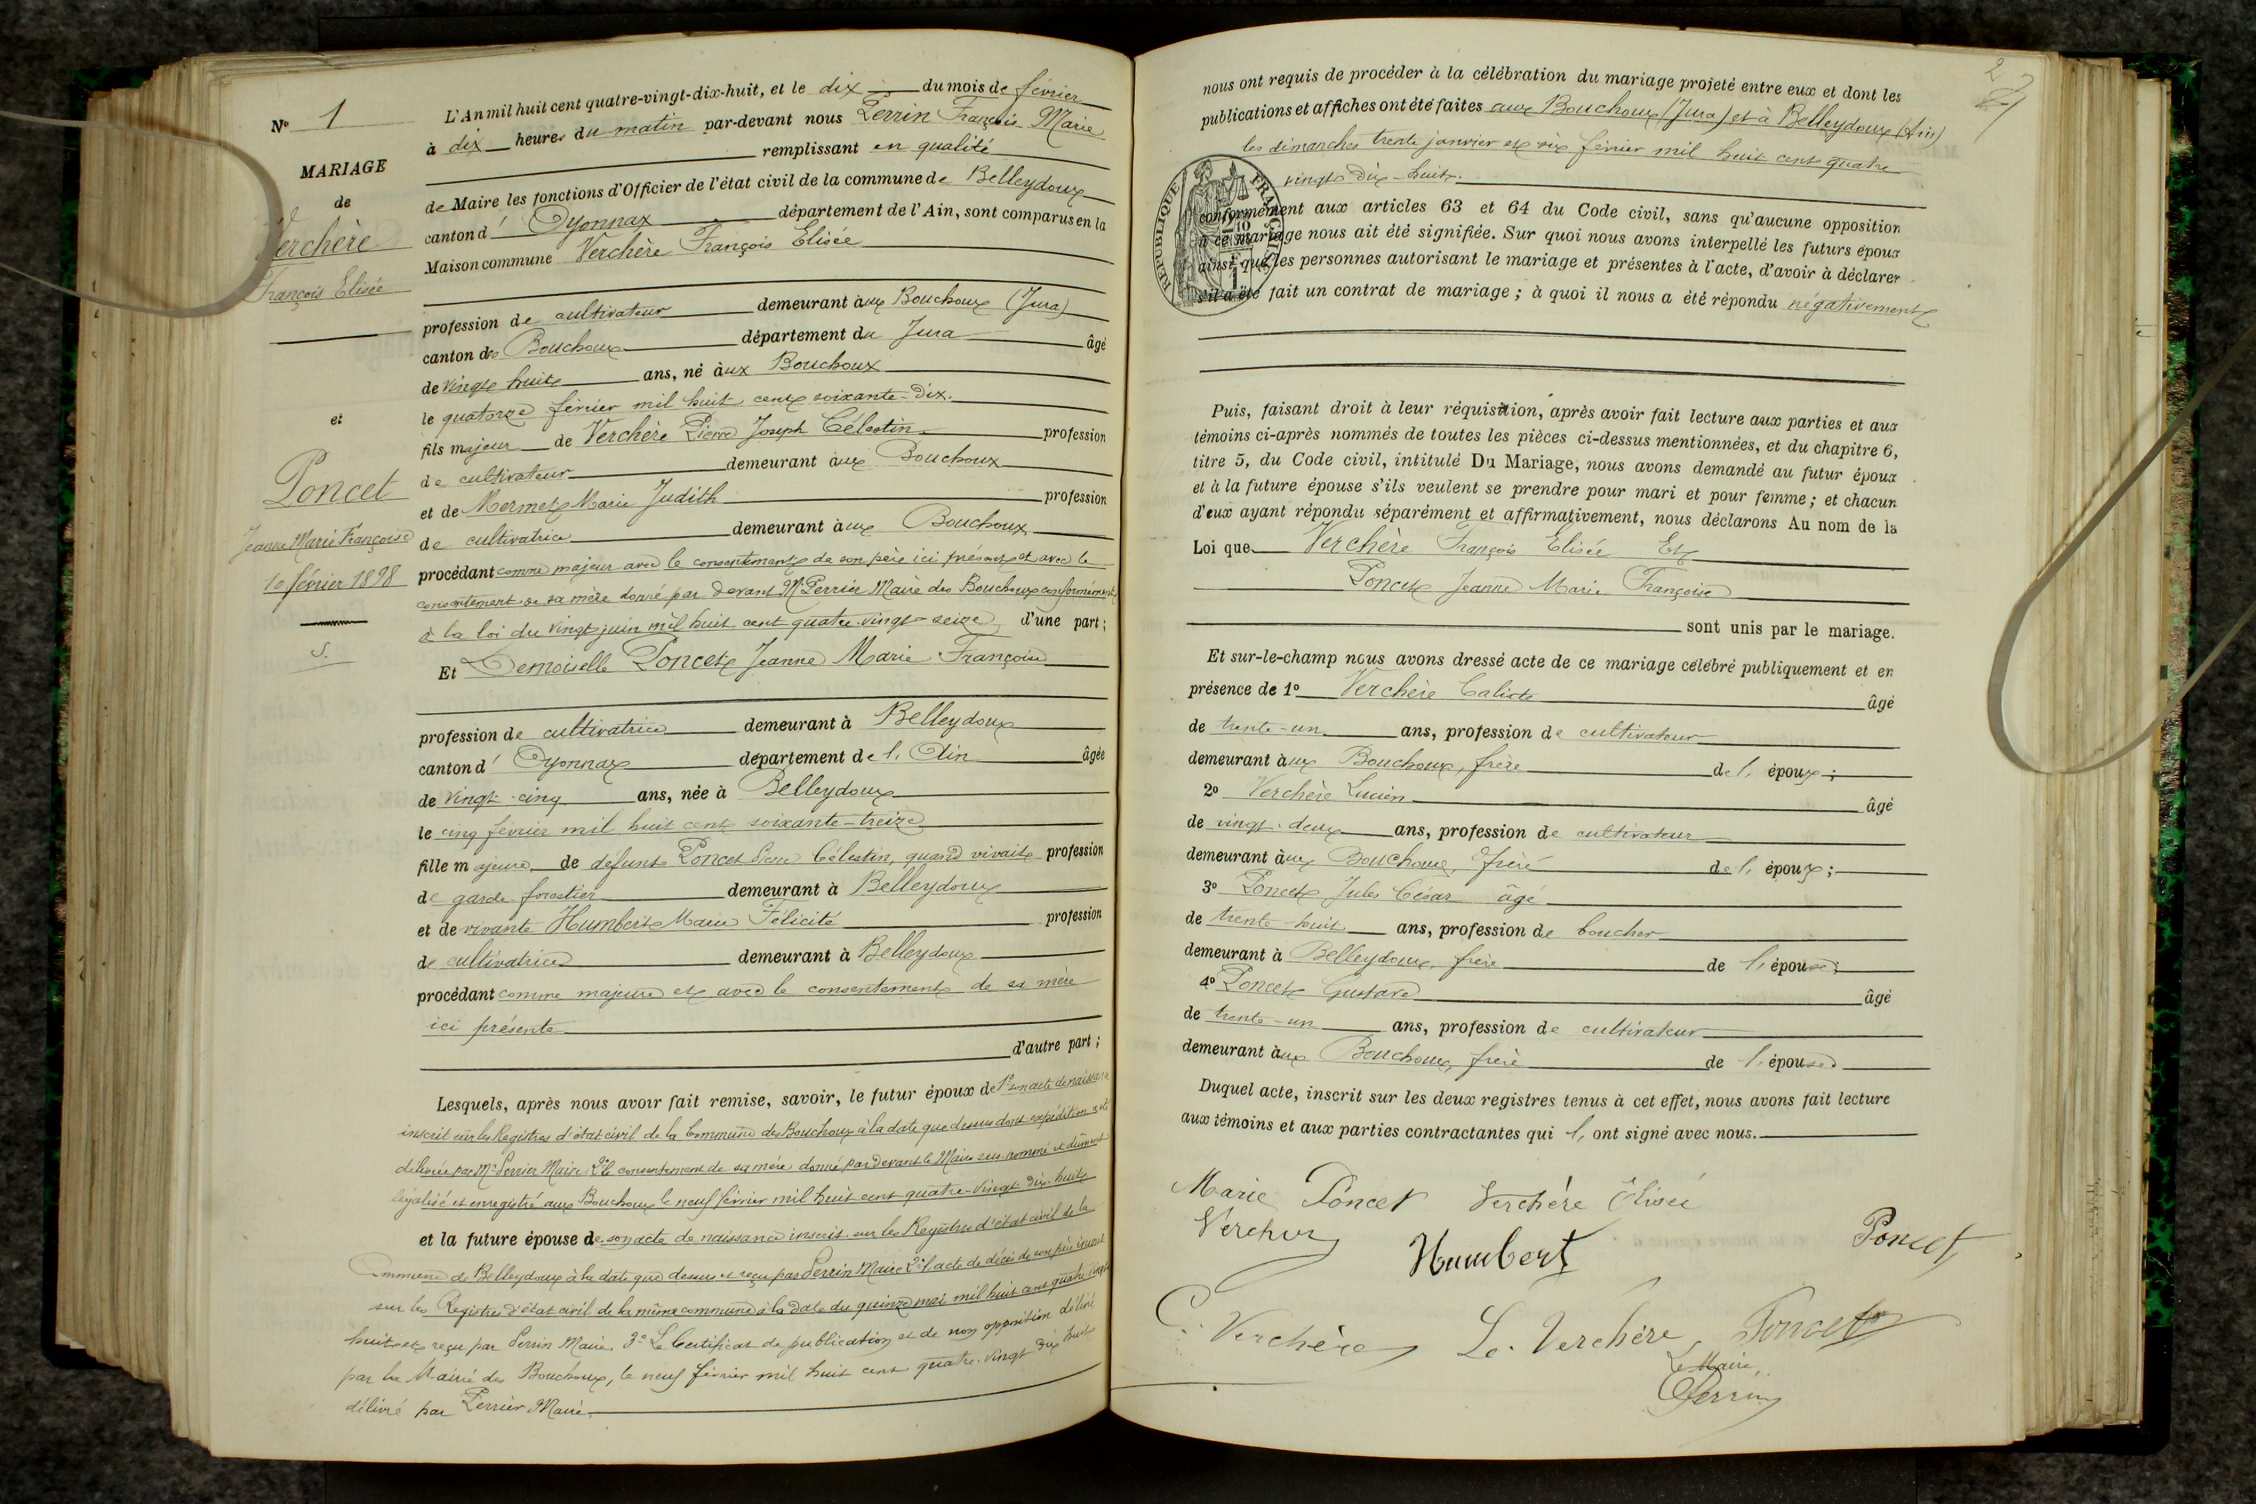 N° 1
MARIAGE
de
Verchère
François Elisée
et
Poncet
Jeanne Marie Françoise
10 février 1898
S.
L'An mil huit cent quatre-vingt-dix-huit, et le dix du mois de février
à dix heures du matin par-devant nous Perrin François Marie
remplissant en qualité
de Maire les fonctions d'Officier de l'état civil de la commune de Belleydoux
canton d' Oyonnax département de l'Ain, sont comparus en la
Maison commune Verchère François Elisée
profession de cultivateur demeurant aux Bouchoux (Jura)
canton des Bouchoux département du Jura âgé
de vingt huit ans, né aux Bouchoux
le quatorze février mil huit cent soixante-dix.
fils majeur de Verchère Pierre Joseph Célestin profession
de cultivateur demeurant aux Bouchoux
et de Mermet Marie Judith profession
de cultivatrice demeurant aux Bouchoux
procédant comme majeur avec le consentement de son père ici présent et avec le
consentement de sa mère donné par devant Mr Perrier Maire des Bouchoux conformément
à la loi du vingt juin mil huit cent quatre-vingt-seize, d'une part;
Et Demoiselle Poncet Jeanne Marie Françoise
profession de cultivatrice demeurant à Belleydoux
canton d' Oyonnax département de l' Ain âgée
de vingt-cinq ans, née à Belleydoux
le cinq février mil huit cent soixante-treize
fille majeure de défunt Poncet Pierre Célestin, quand vivait profession
de garde forestier demeurant à Belleydoux
et de vivante Humbert Marie Félicité profession
de cultivatrice demeurant à Belleydoux
procédant comme majeure et avec le consentement de sa mère
ici présente
d'autre part;
Lesquels, après nous avoir fait remise, savoir, le futur époux de 1° son acte de naissance
inscrit sur les Registres d'état civil de la Commune des Bouchoux à la date que dessus dont expédition a été
délivrée par Mr Perrier Maire 2° le consentement de sa mère donné par devant le Maire sus-nommé et dûment
légalisé et enregistré aux Bouchoux le neuf février mil huit cent quatre-vingt dix-huit
et la future épouse de son acte de naissance inscrit sur les Registres d'état civil de la
Commune de Belleydoux à la date que dessus et reçu par Perrin Maire 2° l'acte de décès de son père inscrit
sur les Registres d'état civil de la même commune à la date du quinze mai mil huit cent quatre vingt
huit et reçu par Perrin Maire 3° Le Certificat de publication et de non opposition délivré
par la Mairie des Bouchoux, le neuf février mil huit cent quatre-vingt dix huit
délivré par Perrier Maire.
2
nous ont requis de procéder à la célébration du mariage projeté entre eux et dont les
publications et affiches ont été faites aux Bouchoux (Jura) et à Belleydoux (Ain)
les dimanches trente janvier et six février mil huit cent quatre
vingt dix-huit.
RÉPUBLIQUE FRANÇAISE
conformément aux articles 63 et 64 du Code civil, sans qu'aucune opposition
à ce mariage nous ait été signifiée. Sur quoi nous avons interpellé les futurs époux
ainsi que les personnes autorisant le mariage et présentes à l'acte, d'avoir à déclarer
s'il a été fait un contrat de mariage; à quoi il nous a été répondu négativement
Puis, faisant droit à leur réquisition, après avoir fait lecture aux parties et aux
témoins ci-après nommés de toutes les pièces ci-dessus mentionnées, et du chapitre 6,
titre 5, du Code civil, intitulé Du Mariage, nous avons demandé au futur époux
et à la future épouse s'ils veulent se prendre pour mari et pour femme; et chacun
d'eux ayant répondu séparément et affirmativement, nous déclarons Au nom de la
Loi que Verchère François Elisée Et
Poncet Jeanne Marie Françoise
sont unis par le mariage.
Et sur-le-champ nous avons dressé acte de ce mariage célébré publiquement et en
présence de 1° Verchère Caliste âgé
de trente-un ans, profession de cultivateur
demeurant aux Bouchoux, frère de l' époux;
2° Verchère Lucien âgé
de vingt-deux ans, profession de cultivateur
demeurant aux Bouchoux, frère de l' époux;
3° Poncet Jules César âgé
de trente-huit ans, profession de boucher
demeurant à Belleydoux, frère de l' épouse;
4° Poncet Gustave âgé
de trente-un ans, profession de cultivateur
demeurant aux Bouchoux, frère de l' épouse
Duquel acte, inscrit sur les deux registres tenus à cet effet, nous avons fait lecture
aux témoins et aux parties contractantes qui l' ont signé avec nous.
Marie Poncet Verchère Elisée
Verchere
Humbert
Poncet
C. Verchère Le. Verchère Poncet
Le Maire
Perrin